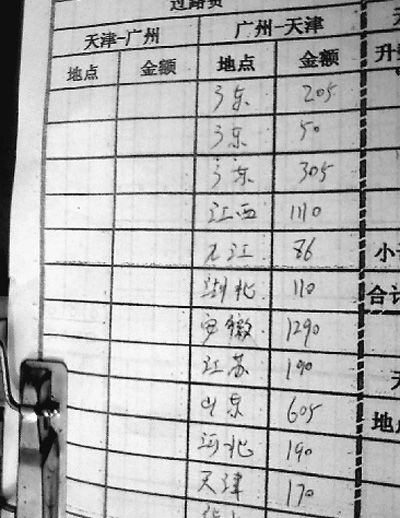 过路费
天津-广州 广州-天津
地点 金额 地点 金额 升
广东 205
广东 50
广东 305
江西 1110
九江 86 小计
湖北 110 合计
安徽 1290
江苏 190
山东 605 地点
河北 190
天津 170